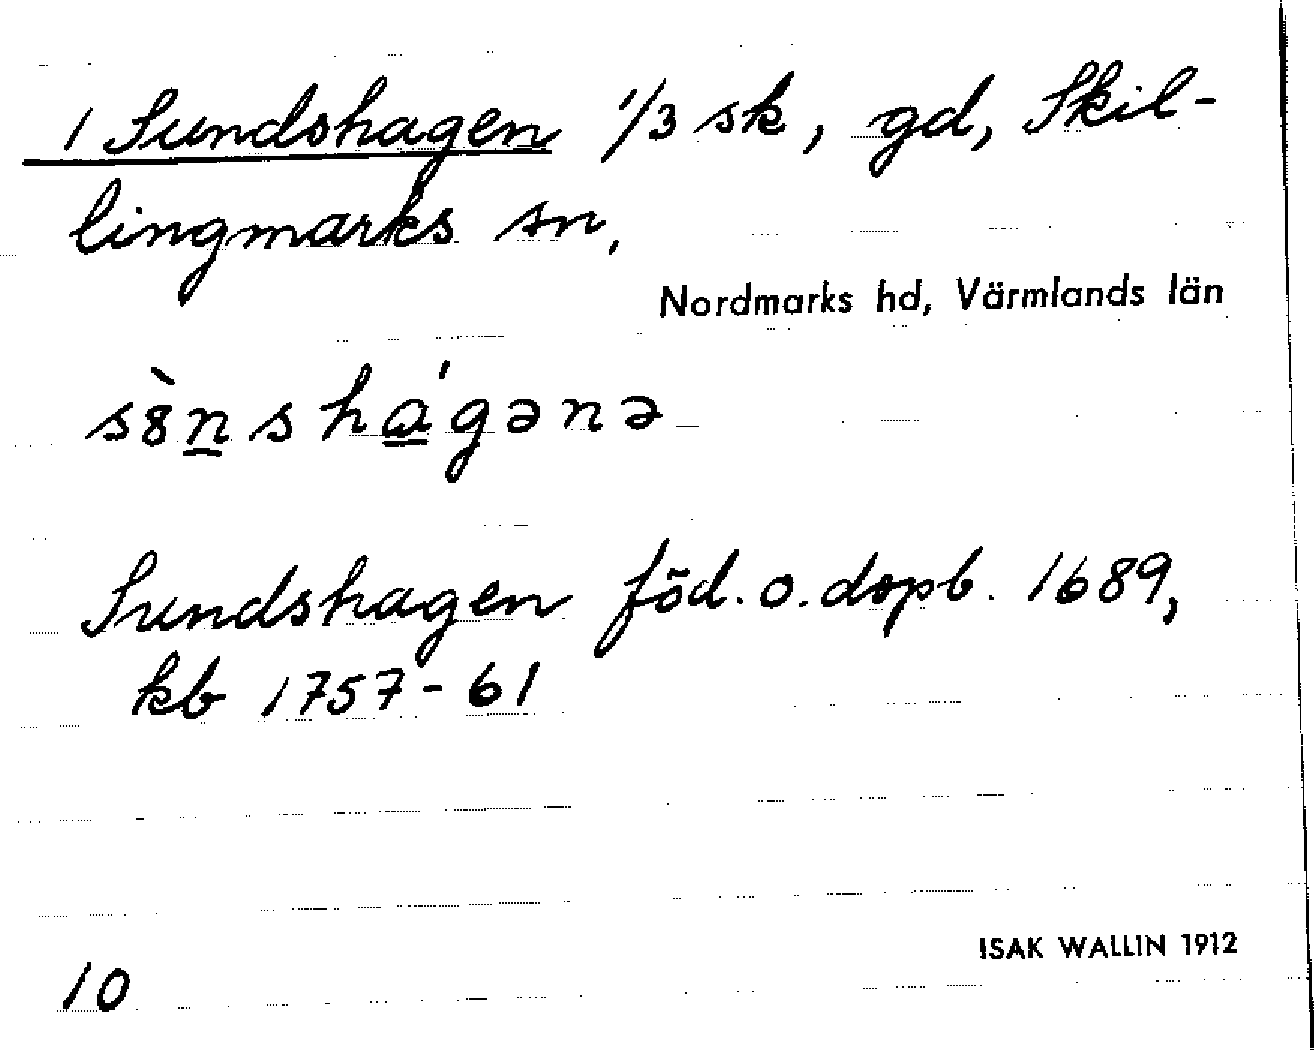 1 Sundshagen 1/3 sk, gd, Skil-
lingmarks sn,
Nordmarks hd, Värmlands län
s8̀n̲shá̲gənə
Sundshagen föd. o. dopb. 1689,
kb 1757-61
ISAK WALLIN 1912
10